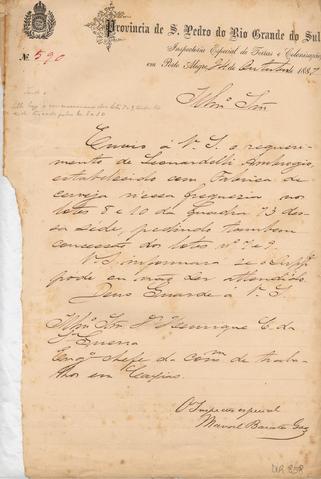 Provincia de S. Pedro do Rio Grande do Sul
Inspectoria Especial de Terras e Colonisação
Nº 590
em Porto Alegre, 24 de 1887
Illmº Snr
Envio á V. S. o requeri-
mento de Leonardelli Ambrogio,
estabelecido com fabrica de
cerveja n'essa freguezia nos
lotes 8 e 10 da quadra 73 des-
sa Séde, pedindo tambem
concessão dos lotes nº 7 e 9.
V. S. informará se o Supp.
pode ou não ser attendido.
Deus Guarde á V. S.
Illmº Snr Dr Henrique C. da
Guerra
Engº Chefe da Comm de traba-
lhos em Caxias
O Inspector especial
Manoel Barata Goes